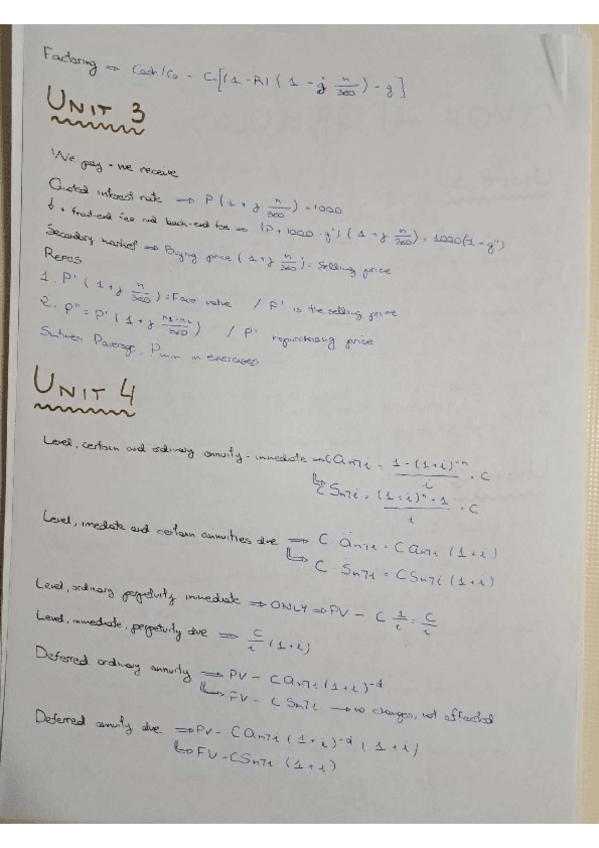 Factoring ⇒ Cash/Co - Cn[(1-R)(1 - j n/360) - g]
UNIT 3
We pay - we receive
Quoted interest rate ⇒ P(1 + j n/360) = 1000
↓ + front-end fee and back-end fee ⇒ (P + 1000 · g')(1 + j n/360) = 1000(1 - g'')
Secondary market ⇒ Buying price (1 + j n/360) = Selling price
REPOS
1. P'(1 + j n/360) = Face value / P' is the selling price
2. P'' = P'(1 + j n1-n2/360) / P' repurchasing price
Paverage, Pmin in exercises
UNIT 4
Level, certain and ordinary annuity - immediate ⇒ C an¬i = 1-(1+i)^-n / i · C
↳ C Sn¬i = (1+i)^n - 1 / i · C
Level, imediate and certain annuities due ⇒ C · än¬i = C an¬i (1+i)
↳ C · S̈n¬i = C Sn¬i (1+i)
Level, ordinary perpetuity immediate ⇒ ONLY ⇒ PV - C 1/i = C/i
Level, immediate, perpetuity due ⇒ C/i (1+i)
Deferred ordinary annuity ⇒ PV - C an¬i (1+i)^-d
↳ FV - C Sn¬i → no changes, not affected
Deferred annuity due ⇒ PV - C an¬i (1+i)^-d (1+i)
↳ FV - C Sn¬i (1+i)